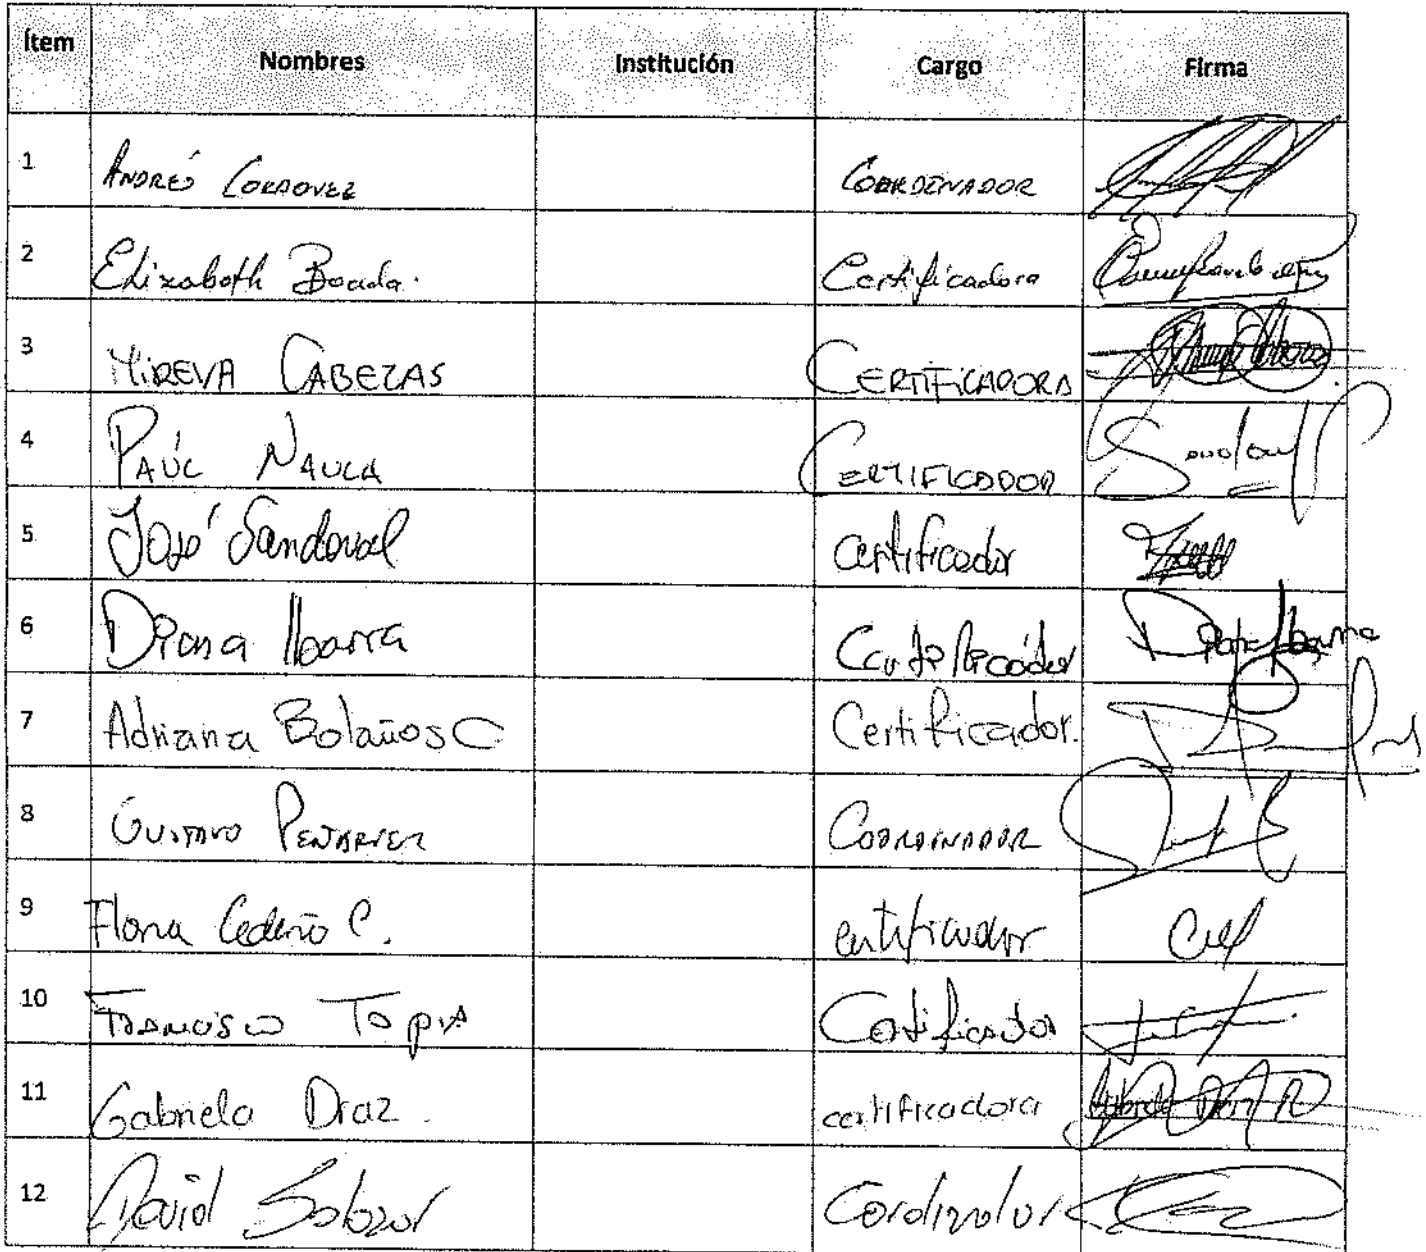 Ítem Nombres Institución Cargo Firma
1 ANDRÉS CORDOVEZ COORDINADOR
2 Elizabeth Boada. Certificadora
3 MIREYA CABEZAS CERTIFICADORA
4 PAÚL NAULA CERTIFICADOR
5 José Sandoval Certificador
6 Diana Ibarra Certificador Diana Ibarra
7 Adriana Bolaños C Certificador.
8 GUSTAVO PEÑAHERRERA COORDINADOR
9 Floria Cedeño C. certificador
10 FRANCISCO TOPIA Certificador
11 Gabriela Diaz. certificadora Gabriela Diaz R
12 David Salazar Cordinador